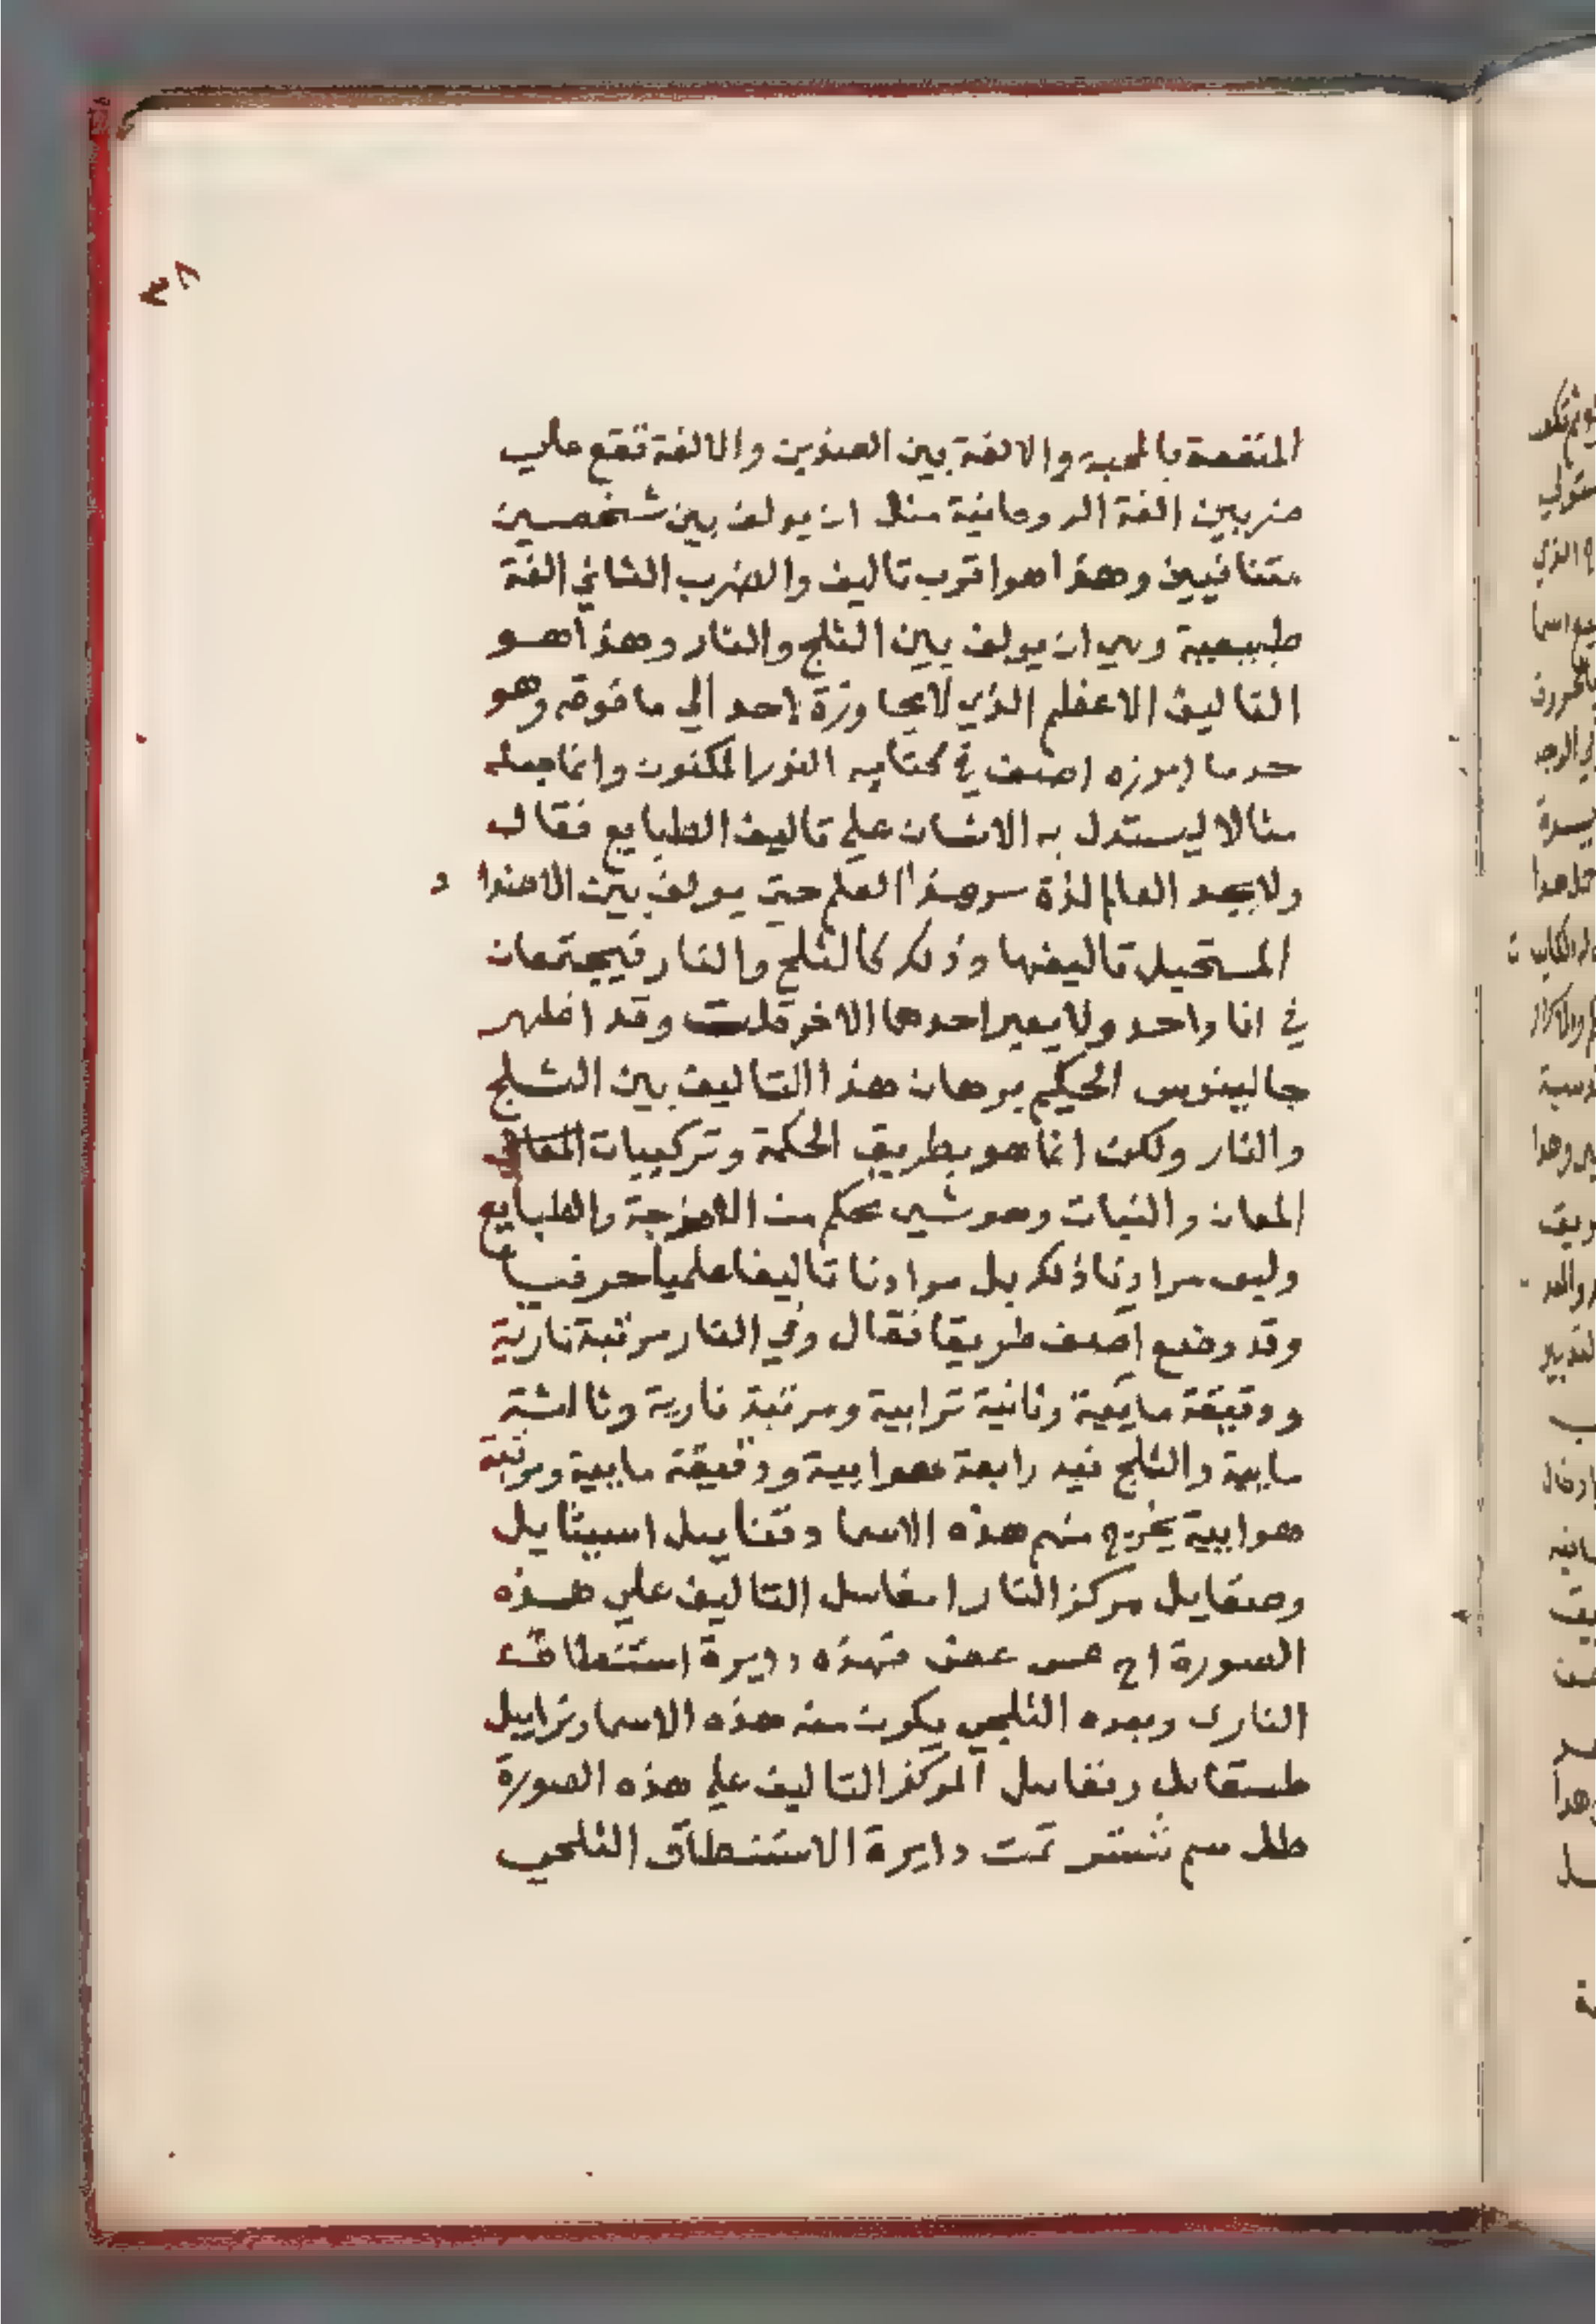 ٣٨
المتقصة بالمحبة والالفة بين الضدين والالفة تقع علي
ضربين الفة الروحانية مثل ان يولف بين شخصين
متنافيين وهذا هو اقرب تاليف والضرب الثاني الفة
طبيعية وهي ان يولف بين الثلج والنار وهذا هو
التاليف الاعظم الذي لا يجاوزة احد الي ما فوقه وهو
حد ما اصف في كتابه النور المكنون وانما جعله
مثالا ليستدل به الانسان علي تاليف الطبايع فقال
ولا يجد العالم لذة سر هذا العلم حتي يولف بين الاضدا د
المستحيل تاليفها وذلك كالثلج والنار فيجتمعان
في انا واحد ولا يغير احدهما الاخر قلت وقد اظهر
جالينوس الحكيم برهان هذا التاليف بين الثلج
والنار ولكن انما هو بطريق الحكمة وتركيبات
المعادن والنبات وهو شي محكم من الامزجة والطبايع
وليس مرادنا ذلك بل مرادنا تاليفا علميا حرفيا
وقد وضع اصف طريقا فقال وفي النار مرتبة نارية
ودقيقة مايية وثانية ترابية ومرتبة نارية وثالثة
مايية والثلج فيه رابعة هوايية ودقيقة مايية ومرتبة
هوايية يخرج منهم هذه الاسما
مركز النار التاليف علي هذه
الصورة فهذه دويرة استنطاق
الناري وبعده الثلجي يكون منه هذه الاسما
المركز التاليف علي هذه الصورة
تمت دايرة الاستنطاق الثلجي